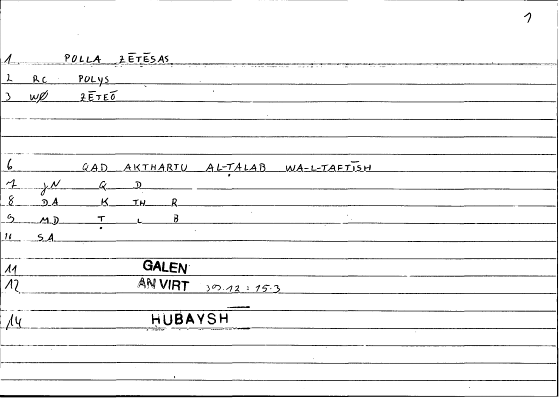 1
1 POLLA ZĒTĒSAS
2 RC POLYS
3 WØ ZĒTEŌ
6 QAD AKTHARTU AL-ṬALAB WA-L-TAFTĪSH
7 JN Q D
8 DA K TH R
9 MD Ṭ L B
10 SA
11 GALEN
12 AN VIRT 12 : 15.3
14 HUBAYSH